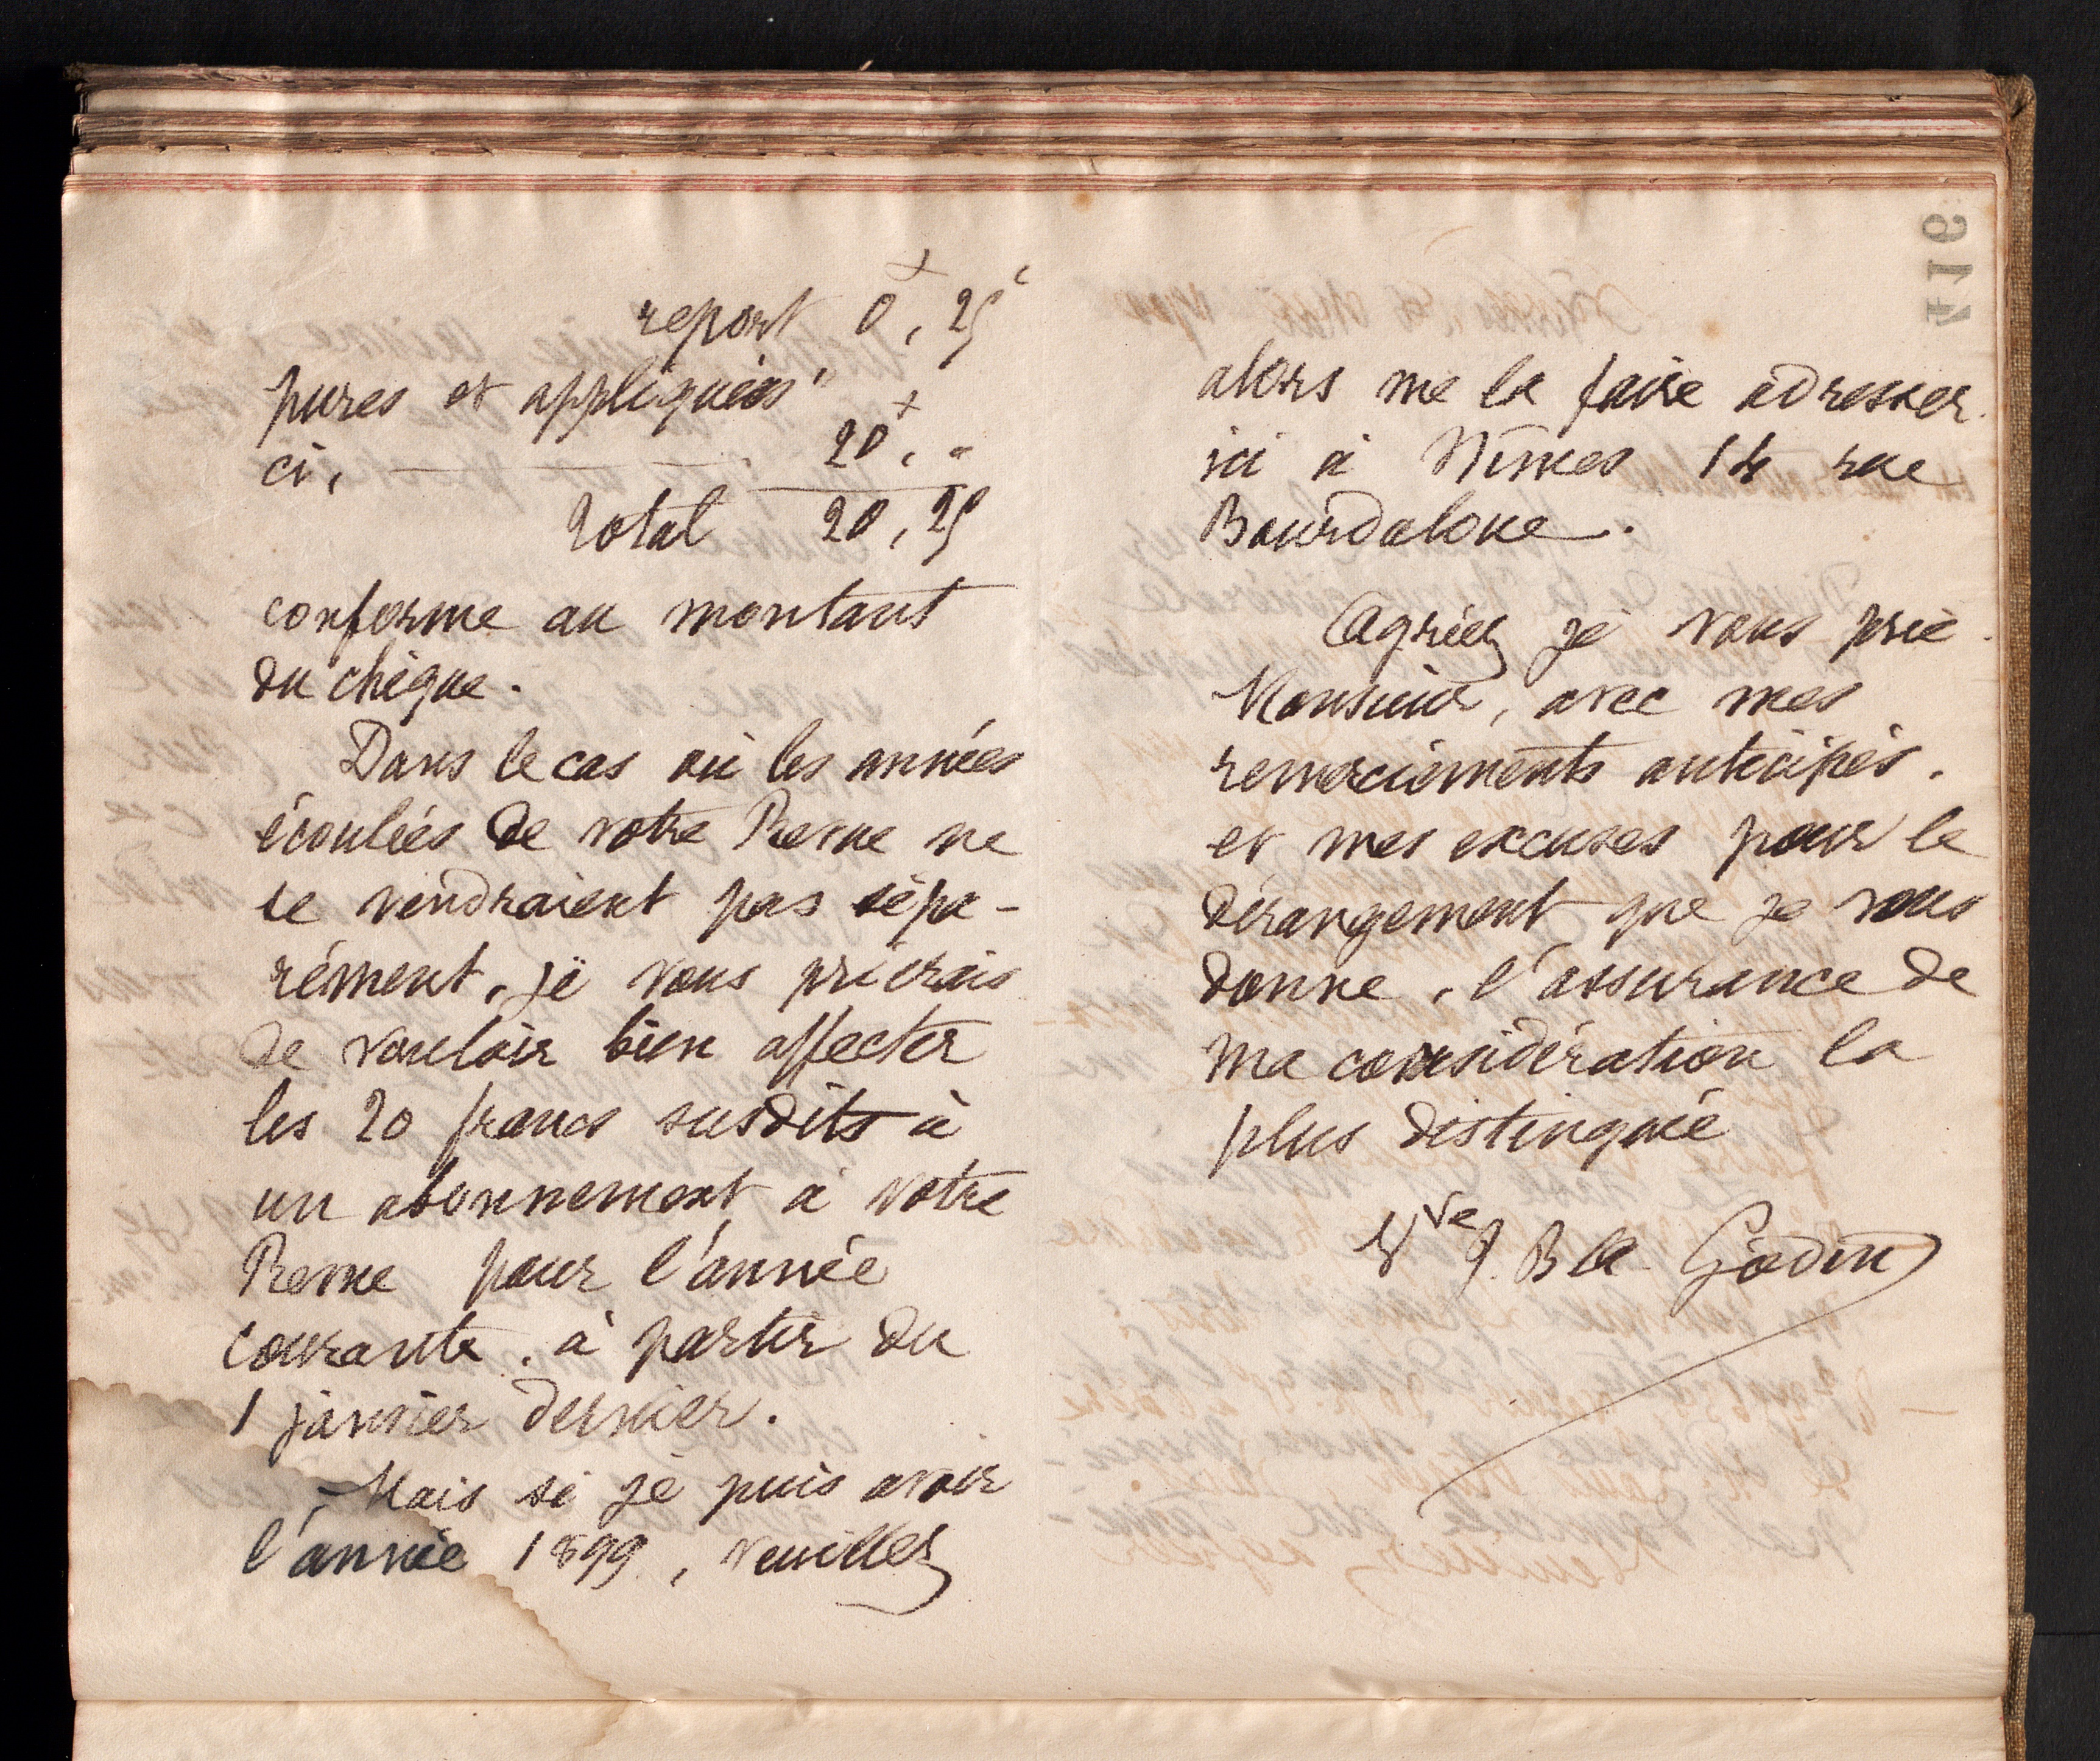 report 0f, 25c
pures et appliquées"
ci, — — — 20f, "
Total 20, 25
conforme au montant
du chèque.
Dans le cas où les années
écoulées de votre Revue ne
se vendraient pas sépa-
rément, je vous prierais
de vouloir bien affecter
les 20 francs susdits à
un abonnement à votre
Revue pour l'année
courante, à partir du
1 janvier dernier.
Mais si je puis avoir
l'année 1899, veuillez
alors me la faire adresser
ici à Nîmes 14 rue
Bourdaloue.
Agréez je vous prie
Monsieur, avec mes
remerciements anticipés,
et mes excuses pour le
dérangement que je vous
donne, l'assurance de
ma considération la
plus distinguée
Vve J. Bte Godin